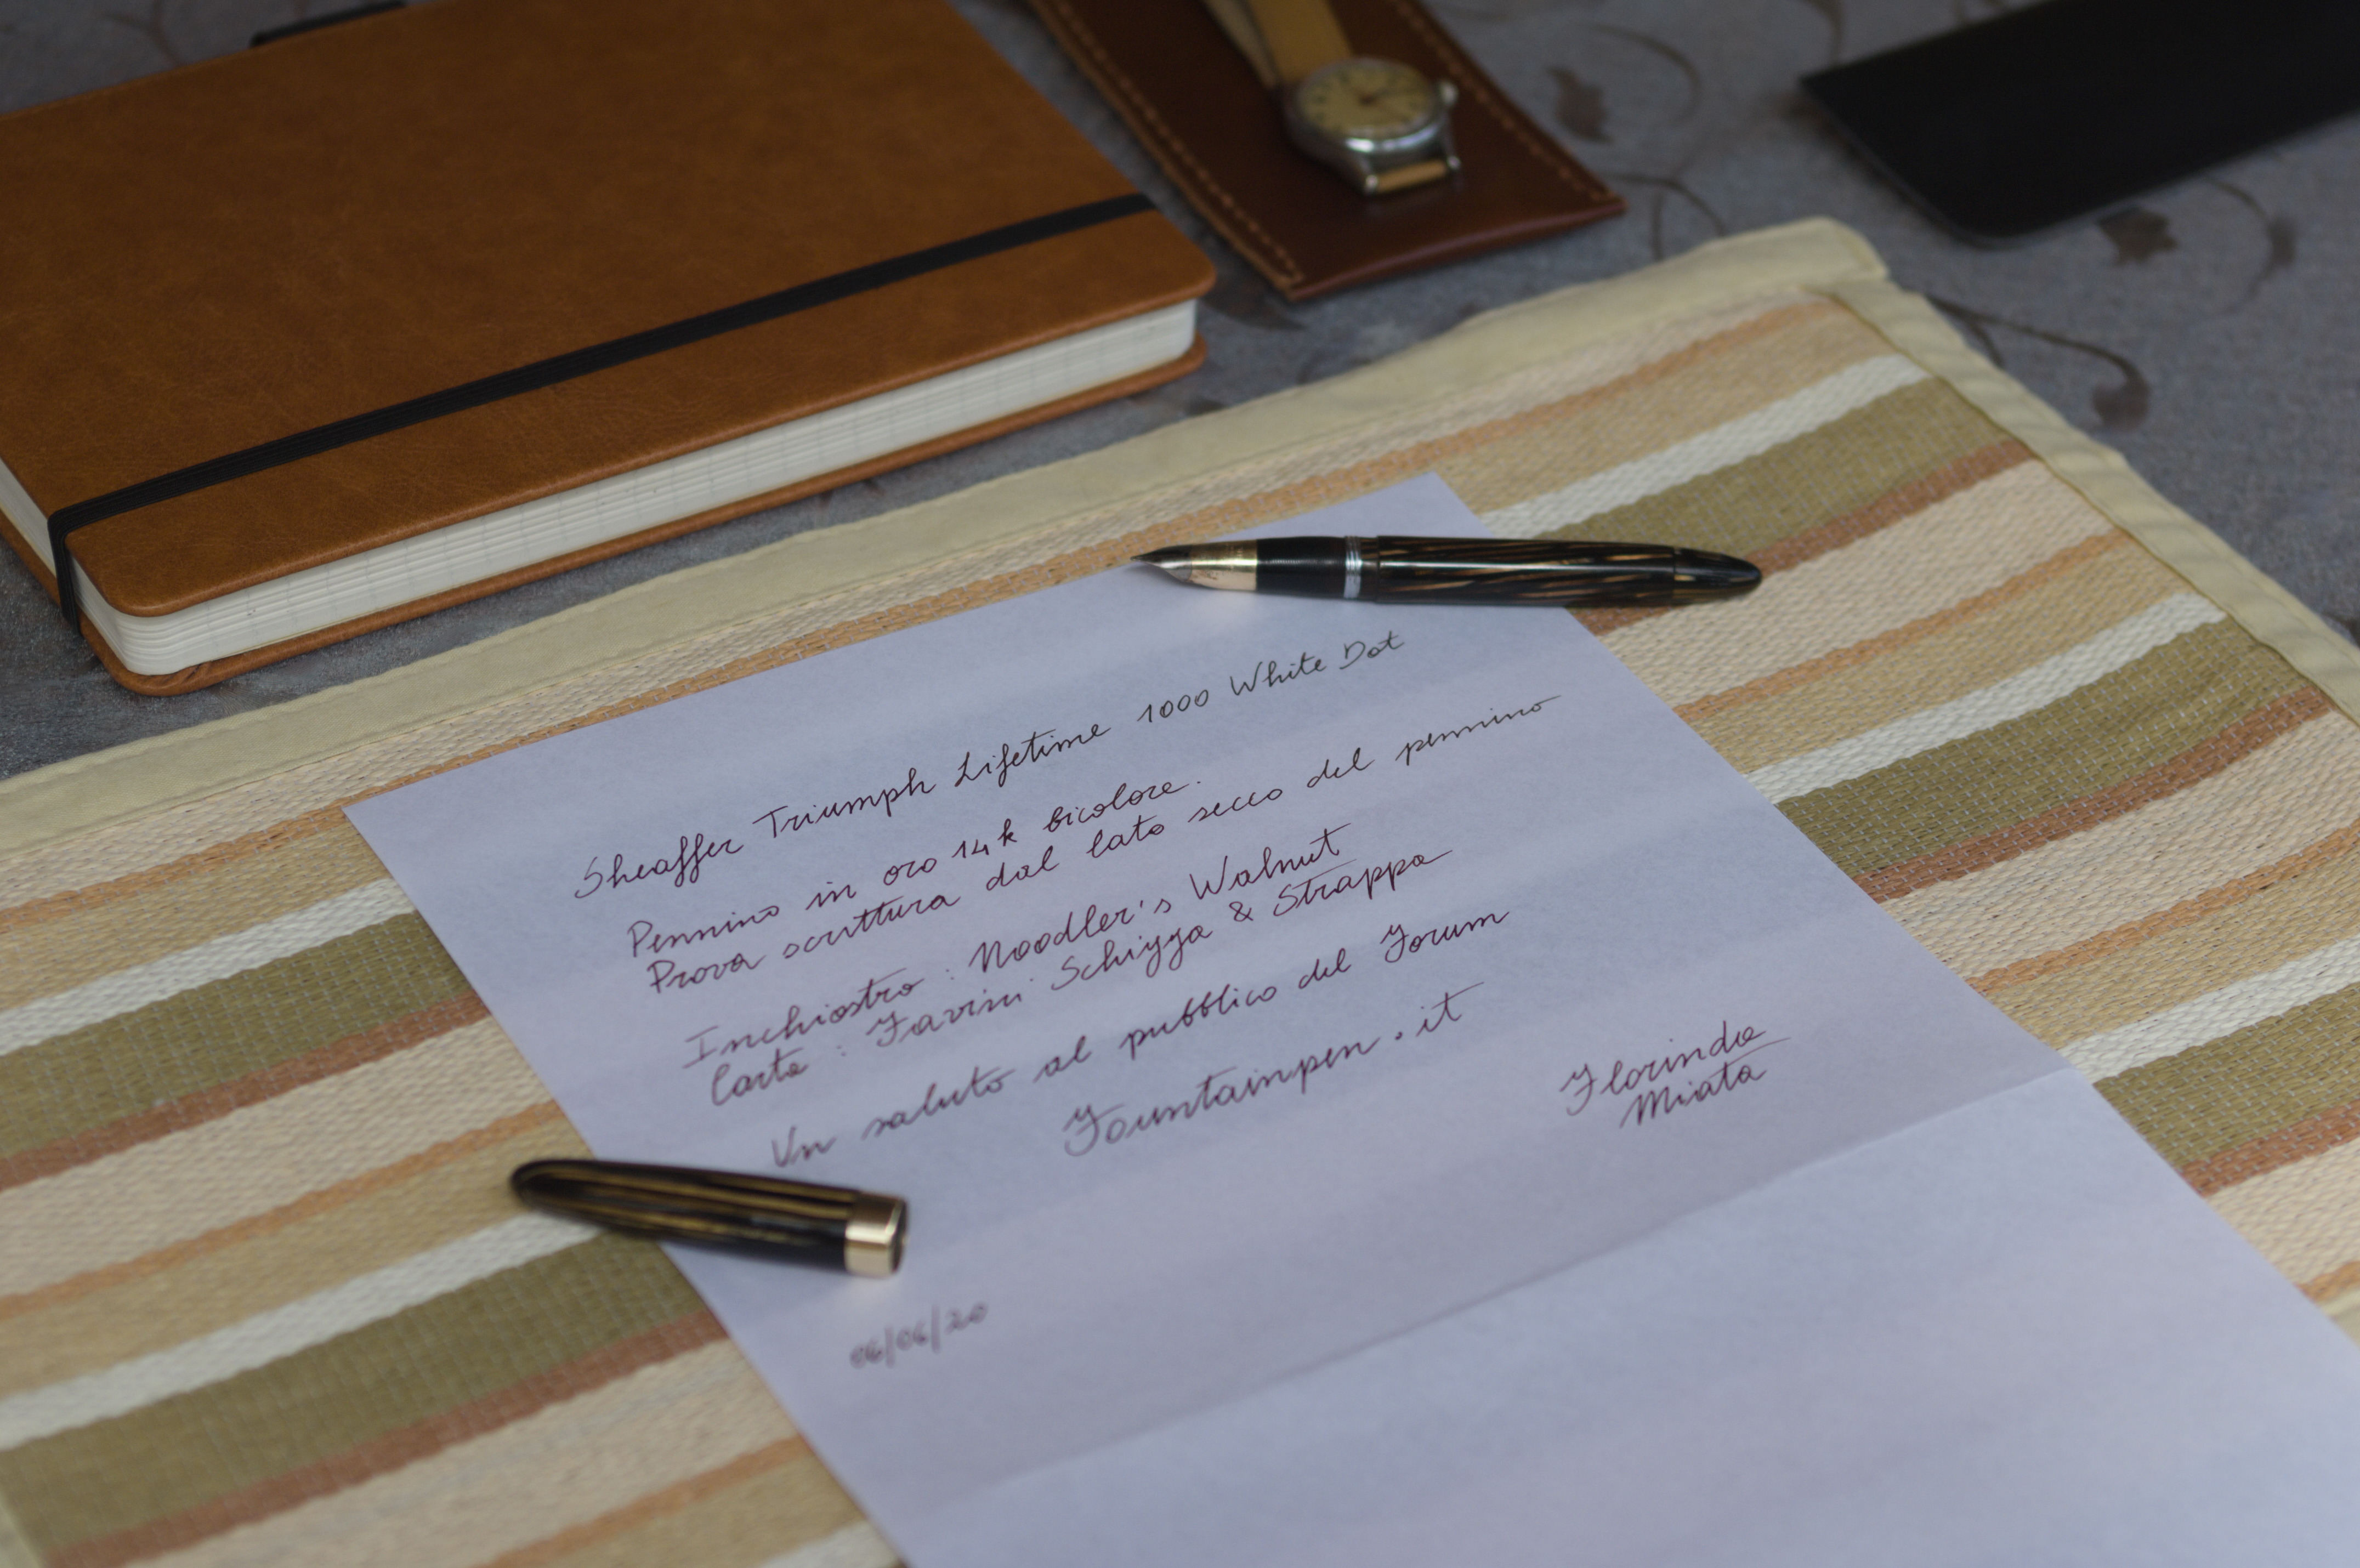 Sheaffer Triumph Lifetime 1000 White Dot
Pennino in oro 14k bicolore.
Prova scrittura dal lato secco del pennino
Inchiostro : Noodler's Walnut
Carta : Favini Schizza & Strappa
Un saluto al pubblico del Forum
Fountainpen.it
Florindo
Miata
06/06/20